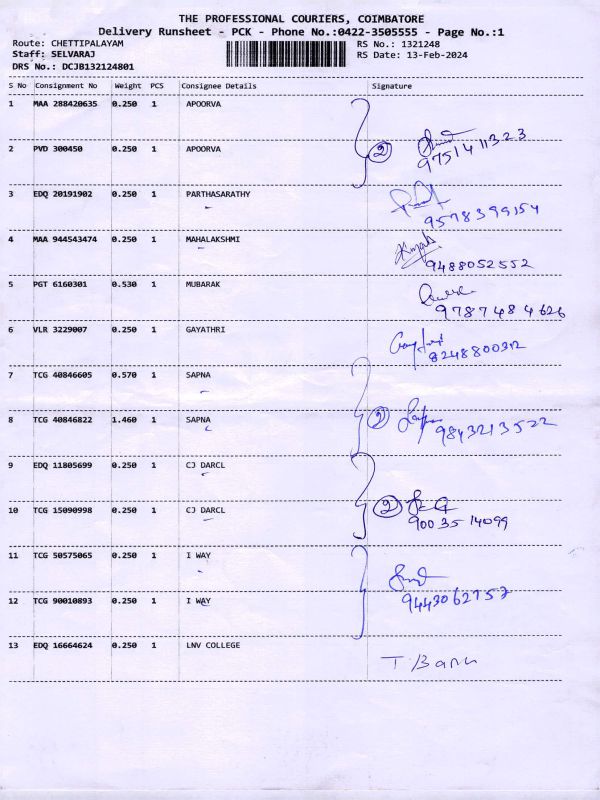 THE PROFESSIONAL COURIERS, COIMBATORE
Delivery Runsheet - PCK - Phone No.:0422-3505555 - Page No.:1
Route: CHETTIPALAYAM RS No.: 1321248
Staff: SELVARAJ RS Date: 13-Feb-2024
DRS No.: DCJB132124801
S No Consignment No Weight PCS Consignee Details Signature
1 MAA 288420635 0.250 1 APOORVA
2 PVD 300450 0.250 1 APOORVA 2
9751411323
3 EDQ 20191902 0.250 1 PARTHASARATHY
9578399154
4 MAA 944543474 0.250 1 MAHALAKSHMI
9488052552
5 PGT 6160301 0.530 1 MUBARAK
9787484626
6 VLR 3229007 0.250 1 GAYATHRI
8248800312
7 TCG 40846605 0.570 1 SAPNA
8 TCG 40846822 1.460 1 SAPNA 2 9843213522
9 EDQ 11805699 0.250 1 CJ DARCL
10 TCG 15090998 0.250 1 CJ DARCL 2
9003514099
11 TCG 50575065 0.250 1 I WAY
12 TCG 90010893 0.250 1 I WAY
9443062757
13 EDQ 16664624 0.250 1 LNV COLLEGE T Banu